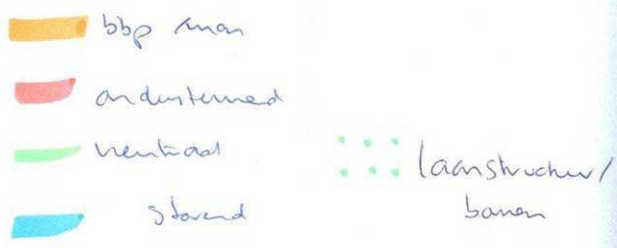 bbp man
ondersteunend
neutraal
storend
laanstructuur/
banen